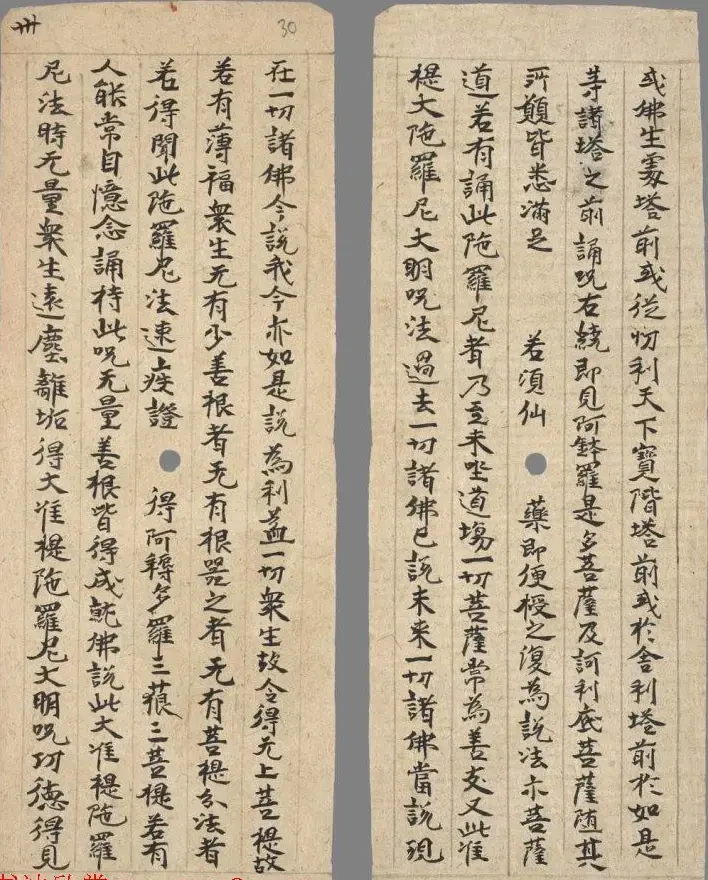 或佛生處塔前或從忉利天下寶階塔前或於舍利塔前於如是
等諸塔之前誦呪右繞即見阿鉢羅是多菩薩及訶利底菩薩随其
所願皆悉滿足 若須仙藥即便授之復為說法示菩薩
道若有誦此陁羅尼者乃至未坐道場一切菩薩常為善友又此准
提大陁羅尼大明呪法過去一切諸佛已說未来一切諸佛當說現
30
在一切諸佛今說我今亦如是說為利益一切衆生故令得无上菩提故
若有薄福衆生无有少善根者无有根器之者无有菩提分法者
若得聞此陁羅尼法速疾證得阿耨多羅三藐三菩提若有
人能常自憶念誦持此呪无量善根皆得成就佛說此大准提陁羅
尼法時无量衆生遠塵離垢得大准提陁羅尼大明呪功德得見